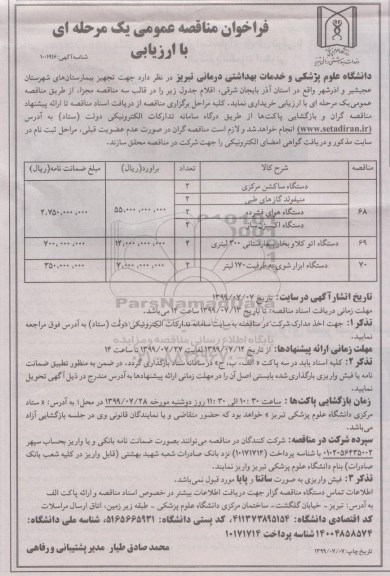 فراخوان مناقصه عمومی یک مرحله ای
با ارزیابی
شناسه آگهی:
دانشگاه علوم پزشکی و خدمات بهداشتی درمانی تبریز در نظر دارد جهت تجهیز بیمارستان‌های شهرستان
عجبشیر و آذرشهر واقع در استان آذربایجان شرقی، اقلام جدول زیر را در قالب سه مناقصه مجزا، از طریق مناقصه
عمومی یک مرحله ای با ارزیابی خریداری نماید. کلیه مراحل برگزاری مناقصه از دریافت اسناد مناقصه تا ارائه پیشنهاد
مناقصه گران و بازگشایی پاکت‌ها از طریق درگاه سامانه تدارکات الکترونیکی دولت (ستاد) به آدرس
(www.setadiran.ir) انجام خواهد شد و لازم است مناقصه گران در صورت عدم عضویت قبلی، مراحل ثبت نام در
سایت مذکور و دریافت گواهی امضای الکترونیکی را جهت شرکت در مناقصه محقق سازند.
مناقصه شرح کالا تعداد برآورد(ریال) مبلغ ضمانت نامه(ریال)
دستگاه ساکشن مرکزی ۲
منیفولد گازهای طبی ۲
۶۸ دستگاه هوای فشرده ۲ ۵۵،۰۰۰،۰۰۰،۰۰۰ ۲،۷۵۰،۰۰۰،۰۰۰
دستگاه
۶۹ دستگاه اتو کلاو بخار بیمارستانی ۳۰۰ لیتری ۴ ۷۰۰،۰۰۰،۰۰۰
۷۰ دستگاه ابزار شوی به ظرفیت ۱۷۰ لیتر ۷،۰۰۰،۰۰۰،۰۰۰ ۳۵۰،۰۰۰،۰۰۰
تاریخ انتشار آگهی در سایت: تاریخ ۱۳۹۹/۰۷/۰۷
مهلت زمانی دریافت اسناد مناقصه: تا تاریخ ۱۳۹۹/۰۷/۱۳ ساعت ۱۴ می‌باشد.
تذکر ۱: جهت اخذ مدارک شرکت در مناقصه به سایت سامانه تدارکات الکترونیکی دولت (ستاد) به آدرس فوق مراجعه
نمایید.
مهلت زمانی ارائه پیشنهادها: از تاریخ ۱۳۹۹/۰۷/۱۴ لغایت ۱۳۹۹/۰۷/۲۷ تا ساعت ۱۴
تذکر ۲: کلیه اسناد باید در سه پاکت « الف، ب، ج» در سامانه ستاد بارگذاری گردد، در ضمن به منظور تطبیق ضمانت
نامه یا فیش واریزی بارگذاری شده بایستی اصل آن را در مهلت زمانی ارائه پیشنهادها به آدرس مندرج در ذیل آگهی تحویل
نمایند.
زمان بازگشایی پاکت‌ها : ساعت ۱۰:۳۰ الی ۱۱:۳۰ روز دوشنبه مورخه ۱۳۹۹/۰۷/۲۸ در محل؛ به آدرس: « ستاد
مرکزی دانشگاه علوم پزشکی تبریز » خواهد بود که حضور متقاضی و یا نمایندگان قانونی وی در جلسه بازگشایی آزاد
می‌باشد.
سپرده شرکت در مناقصه: شرکت کنندگان در مناقصه می‌توانند بصورت ضمانت نامه بانکی و یا واریز بحساب سپهر
۰۱۰۲۰۵۶۴۳۵۰۰۲ با شناسه پرداخت (۱۰۱۷۱۷۱۴) نزد بانک صادرات شعبه شهید بهشتی (قابل واریز در کلیه شعب بانک
صادرات) بنام دانشگاه علوم پزشکی تبریز واریز نمایند.
تذکر ۳: فیش واریزی به صورت ساتنا و پایا مورد قبول نمی‌باشد.
اطلاعات تماس دستگاه مناقصه گزار جهت دریافت اطلاعات بیشتر در خصوص اسناد مناقصه و ارائه پاکت الف
به آدرس: تبریز - خیابان گلگشت- ساختمان مرکزی دانشگاه علوم پزشکی - طبقه زیر زمین، اتاق ارسال مراسلات
کد اقتصادی دانشگاه: ۴۱۱۳۷۳۸۹۵۱۵۴، کد پستی دانشگاه: ۵۱۶۵۶۶۵۹۳۱، شناسه ملی دانشگاه:
۱۴۰۰۴۸۵۸۵۷۴ شناسه پرداخت ۱۰۱۷۱۷۱۴
تاریخ چاپ: ۱۳۹۹/۰۷/۰۷ محمد صادق طیار مدیر پشتیبانی و رفاهی